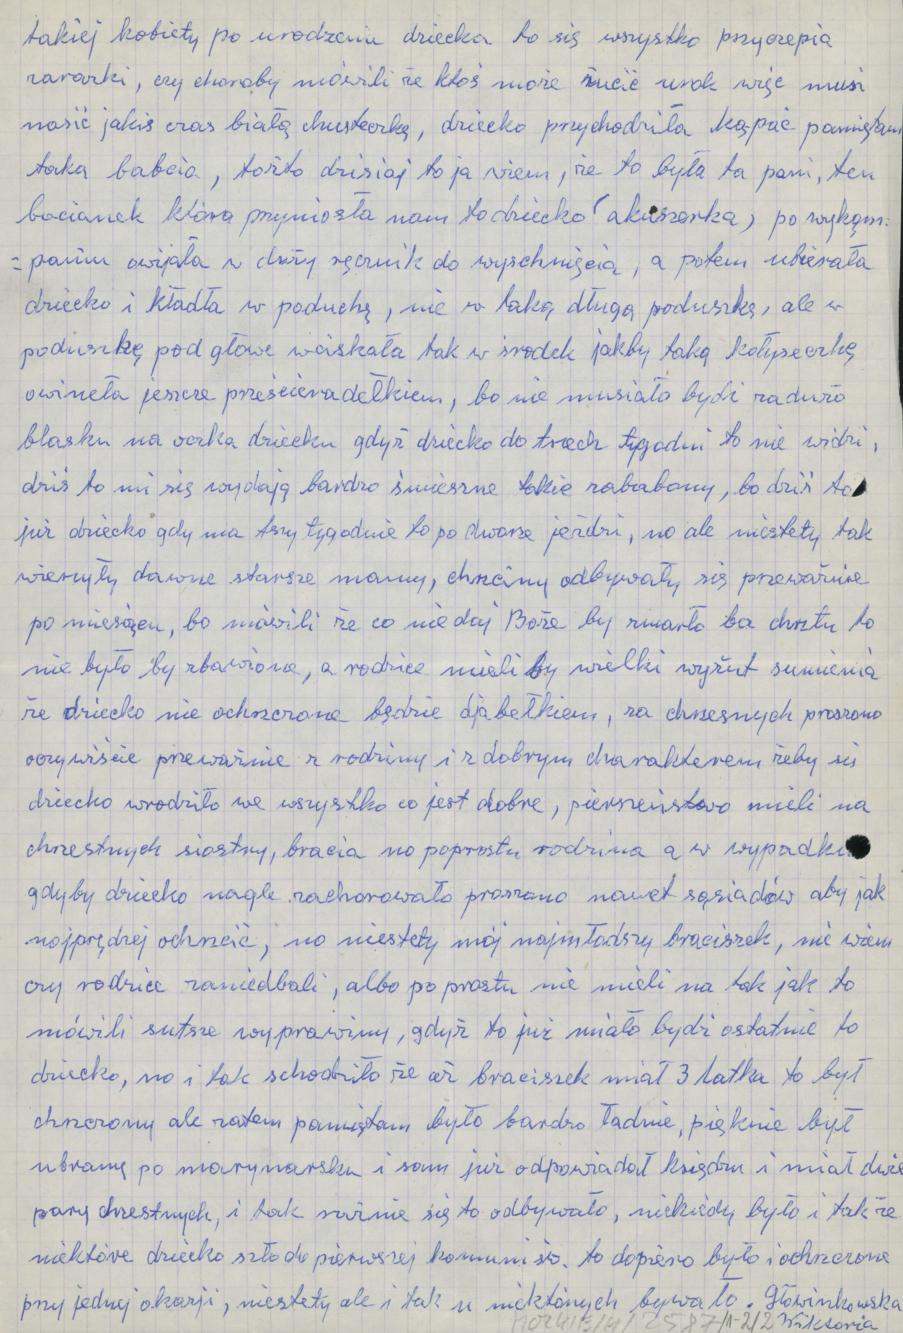 takiej kobiety po urodzeniu dziecka to się wszystko przyczepia
zarazki, czy choroby mówili że ktoś może rzucić urok więc musi
nosić jakiś czas białą chusteczkę, dziecko przychodziła kąpać pamiętam
taka babcia, tożto dzisiaj to ja wiem, że to była ta pani, ten
bocianek która przyniosła nam to dziecko (akuszerka) po wykąm:
=paniu owijała w duży ręcznik do wyschnięcia, a potem ubierała
dziecko i kładła w poduchę, nie w taką długą poduszkę, ale w
poduszkę pod głowe wciskała tak w środek jakby taką kołyseczkę
owineła jeszcze prześcieradełkiem, bo nie musiało bydź zadużo
blasku na oczka dziecku gdyż dziecko do trzech tygodni to nie widzi,
dziś to mi się wydają bardzo śmieszne takie zababony, bo dziś to
już dziecko gdy ma trzy tygodnie to po dworze jeździ, no ale niestety tak
wierzyły dawne starsze mamy, chrzciny odbywały się przeważnie
po miesiącu, bo mówili że co nie daj Boże by zmarło bez chrztu to
nie było by zbawione, a rodzice mieli by wielki wyżut sumienia
że dziecko nie ochrzczone będzie djabełkiem, za chrzesnych proszono
oczywiście przeważnie z rodziny i z dobrym charakterem żeby się
dziecko wrodziło we wszystko co jest dobre, pierszeństwo mieli na
chrzestnych siostry, bracia no poprostu rodzina a w wypadku
gdyby dziecko nagle zachorowało proszono nawet sąsiadów aby jak
najprędzej ochrzcić, no niestety mój najmłodszy braciszek, nie wiem
czy rodzice zaniedbali, albo po prostu nie mieli na tak jak to
mówili sutsze wyprawiny, gdyż to już miało bydź ostatnie to
dziecko, no i tak schodziło że aż braciszek miał 3 latka to był
chrzczony ale zatem pamiętam było bardzo ładnie, pięknie był
ubrany po marynarsku i sam już odpowiadał księdzu i miał dwie
pary chrzestnych, i tak różnie się to odbywało, niekiedy było i tak że
niektóre dziecko szło do pierwszej komuni św. to dopiero było i ochrzczone
przy jednej okazji, niestety ale i tak u niektórych bywało. Głowinkowska
Wiktoria